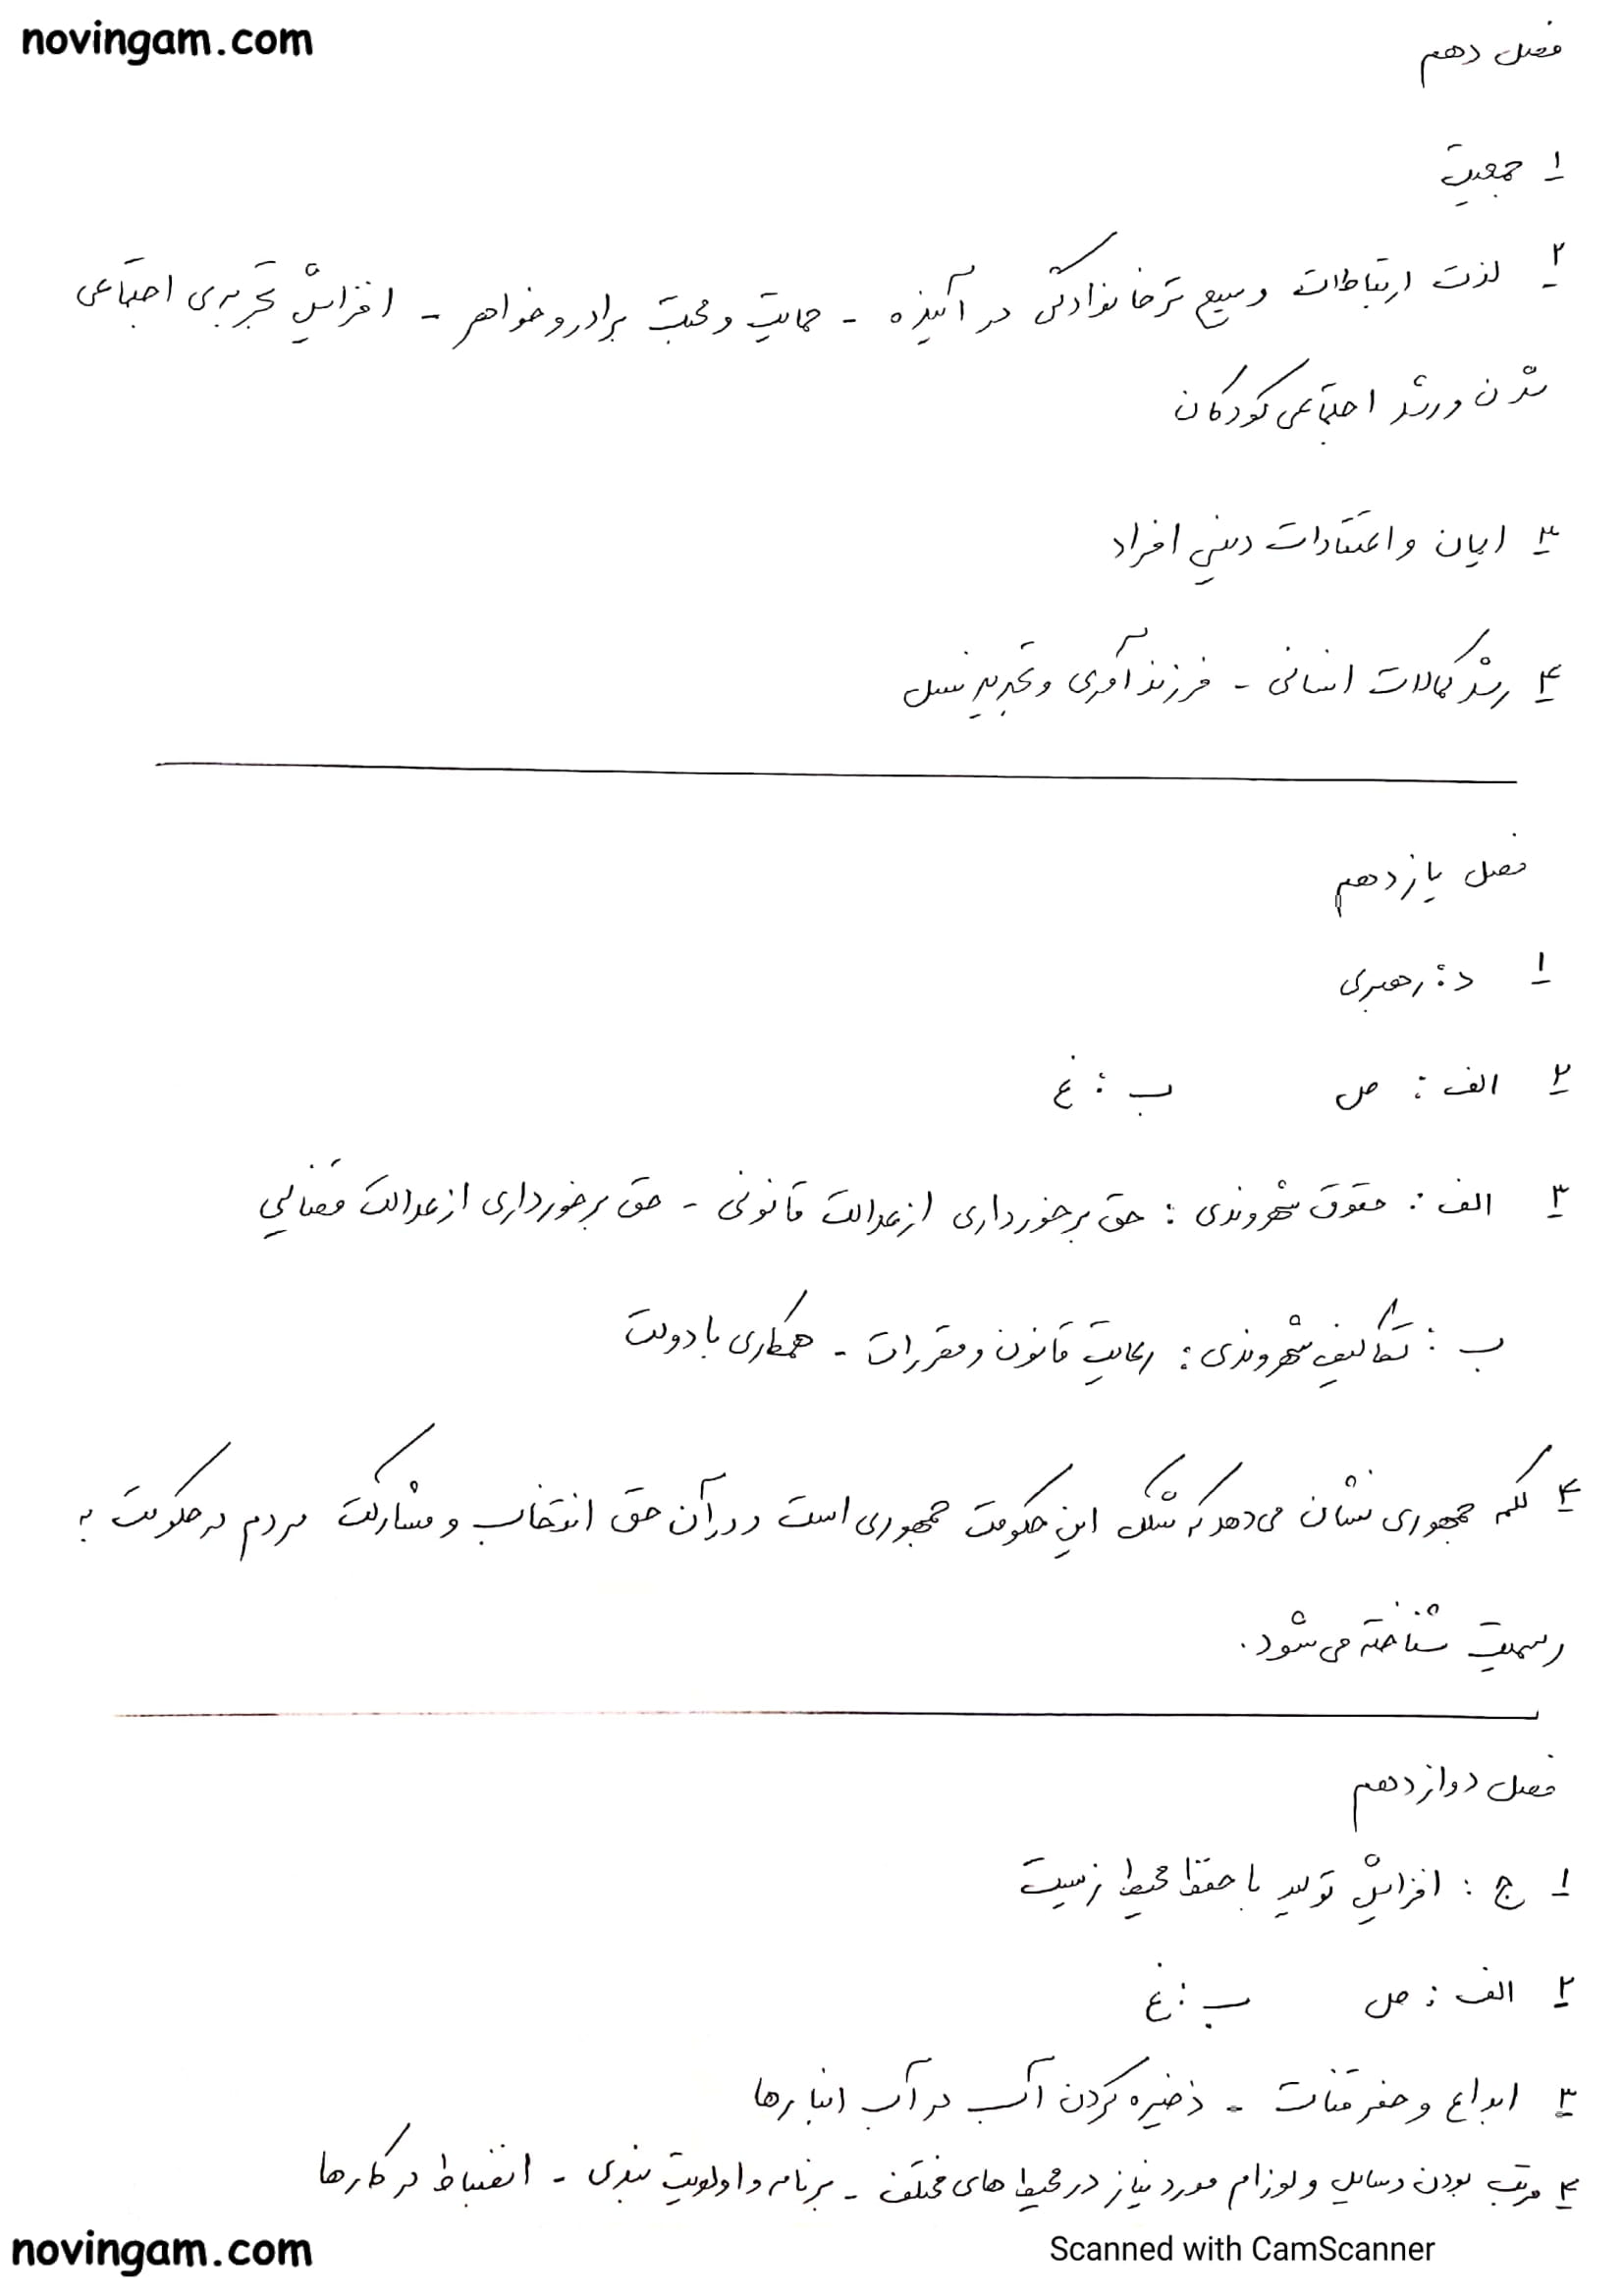 novingam.com
فصل دهم
۱- جمعیت
۲- لذت ارتباطات وسیع تر خانوادگی در آینده - حمایت و محبت برادر و خواهر - افزایش تجربه ی اجتماعی
شدن و رشد اجتماعی کودکان
۳- ایمان و اعتقادات دینی افراد
۴- رشد کمالات انسانی - فرزند آوری و تجدید نسل
فصل یازدهم
۱- د: رهبری
۲- الف: ص ب: غ
۳- الف: حقوق شهروندی: حق برخورداری از عدالت قانونی - حق برخورداری از عدالت قضایی
ب: تکالیف شهروندی: رعایت قانون و مقررات - همکاری با دولت
۴- کلمه جمهوری نشان می‌دهد که شکل این حکومت جمهوری است و در آن حق انتخاب و مشارکت مردم در حکومت به
رسمیت شناخته می شود.
فصل دوازدهم
۱- ج: افزایش تولید با حفظ محیط زیست
۲- الف: ص ب: غ
۳- ابداع و حفر قنات - ذخیره کردن آب در آب انبارها
۴- مرتب بودن وسایل و لوازم مورد نیاز در محیط های مختلف - برنامه و اولویت بندی - انضباط در کارها
novingam.com
Scanned with CamScanner